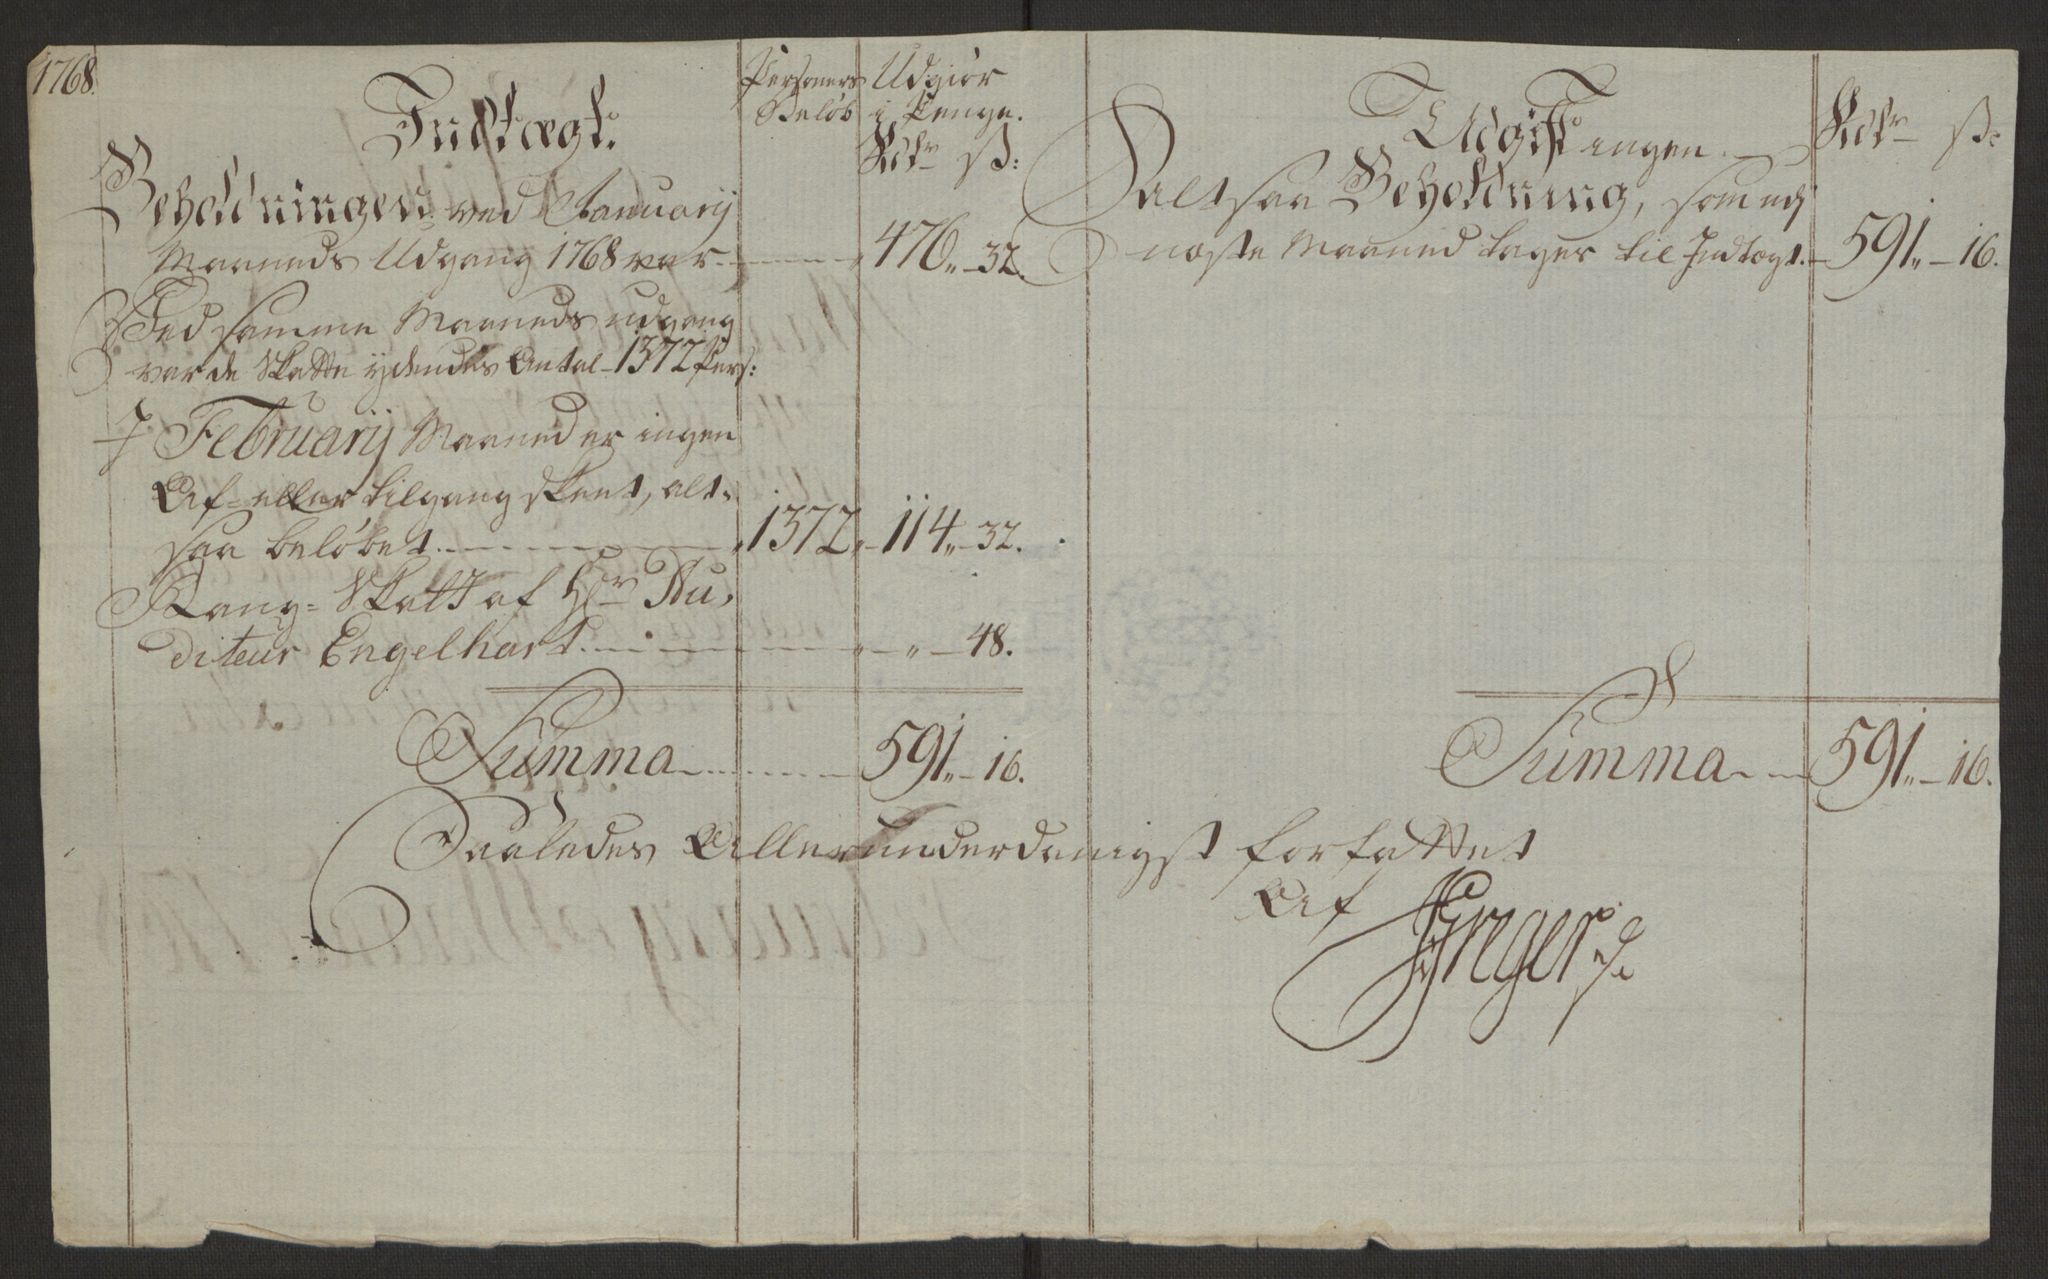 1768.
Indtægt.
Personers Beløb
Udgiør i Penge.
Rdr ß:
Beholdningen ved Januarij
Maaneds Udgang 1768 var 476 „ 32.
Ved samme Maaneds udgang
var de Skatte ydendes Antal 1372 Pers:
I Februarij Maaned er ingen
Af- eller tilgang skeet, alt-
saa beløbet 1372 „ 114 „ 32.
Rang-Skatt af Hr Au-
diteur Engelhart „ „ 48.
Summa 591 „ 16.
Udgift ingen.
Rdr ß:
altsaa Beholdning, som udj
næste Maaned tages til Indtægt. 591 „ 16.
Summa 591 „ 16.
Saaledes Allerunderdanigst forfattet
Af